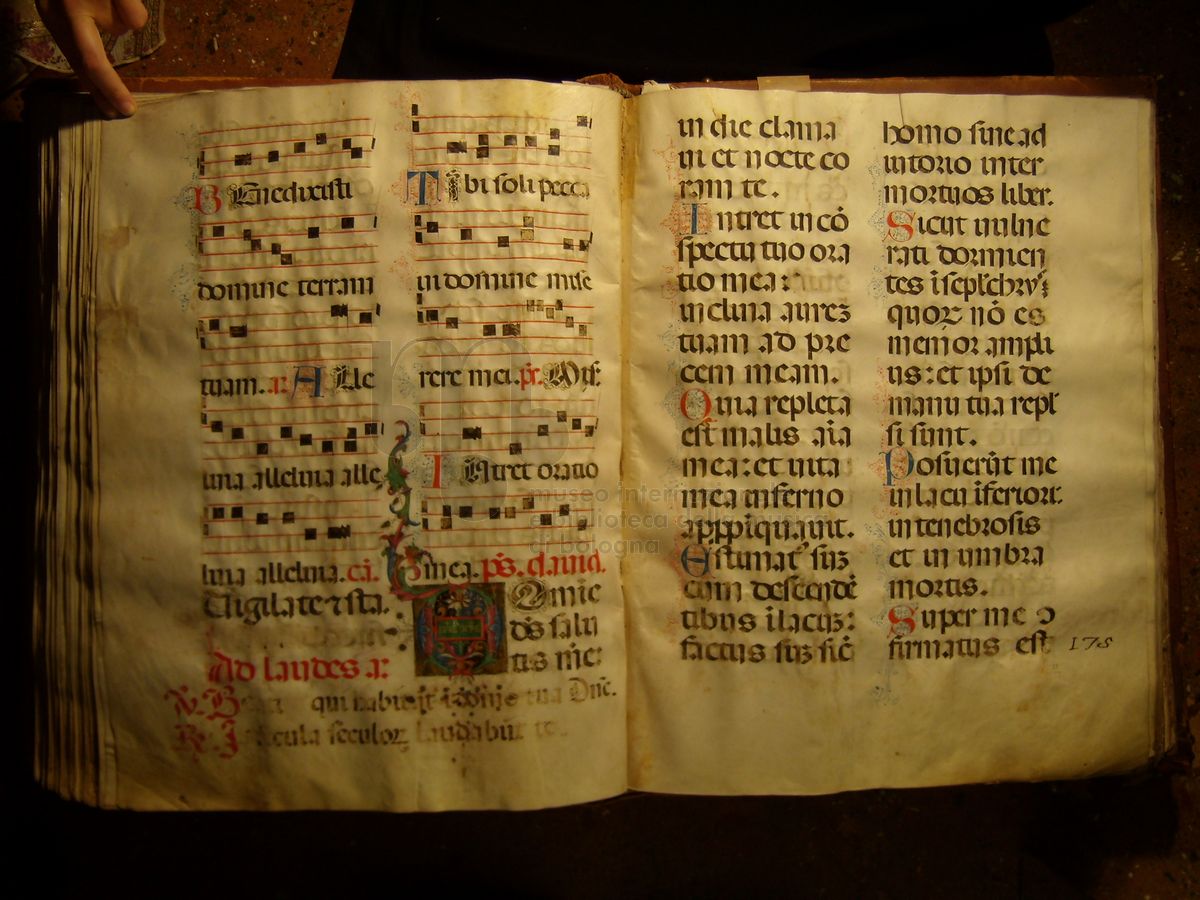 Benedixisti
domine terram
tuam. a. Alle
luia alleluia alle
luia alleluia. ca.
Uigilate ⁊ ista.
Ad laudes a.
℣. B qui habitāt ī domo tua Dn̄e.
℟. I secula seculoꝝ laudabūt te.
Tibi soli pecca
ui domine mise
rere mei. pr̄. Mis̄:
Intret oratio
mea. ps̄. dauid.
Domīe
dēs salu
tis me͞e:
in die clama
ui et nocte co
ram te.
Intret in cō
spectu tuo ora
tio mea:
inclina aureꝫ
tuam ad pre
cem meam.
Quia repleta
est malis aīa
mea: et uita
mea inferno
appropiquauit.
Estimatꝰ suꝫ
cum descendē
tibus ī lacuꝫ:
factus suꝫ sic̄
homo sine ad
iutorio inter
mortuos liber.
Sicut uulne
rati dormien
tes ī seplc̄hris
quoꝝ nō es
memor ampli
us: et ipsi de
manu tua repl̄
si sunt.
Posuerūt me
in lacu īferiori:
in tenebrosis
et in umbra
mortis.
Super me ↄ
firmatus est
178
museo internazionale
e biblioteca della musica
di bologna